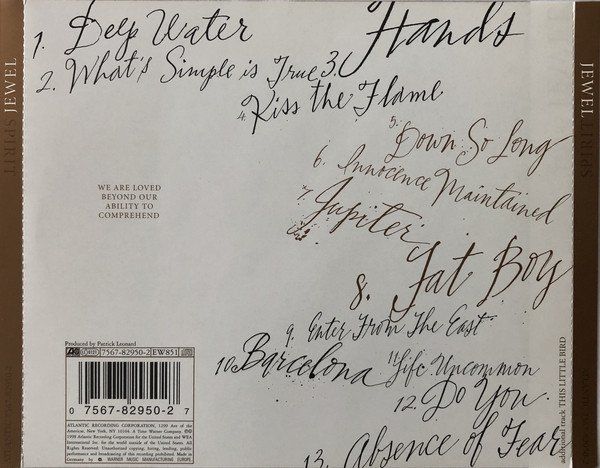 JEWEL SPIRIT
1. Deep Water
2. What's Simple is True 3. Hands
4. Kiss the Flame
5. Down So Long
6. Innocence Maintained
7. Jupiter
8. Fat Boy
9. Enter From The East
10. Barcelona 11. Life Uncommon
12. Do You
13. Absence of Fear
WE ARE LOVED
BEYOND OUR
ABILITY TO
COMPREHEND
Produced by Patrick Leonard
7567-82950-2 EW851
0 7567-82950-2 7
ATLANTIC RECORDING CORPORATION, 1290 Ave of the
Americas, New York, NY 10104. A Time Warner Company
1998 Atlantic Recording Corporation for the United States and WEA
International Inc. for the world outside of the United States. All
Rights Reserved. Unauthorized copying, hiring, lending, public
performance and broadcasting of this recording prohibited. Made in
Germany by WARNER MUSIC MANUFACTURING EUROPE.
additional track THIS LITTLE BIRD
JEWEL SPIRIT